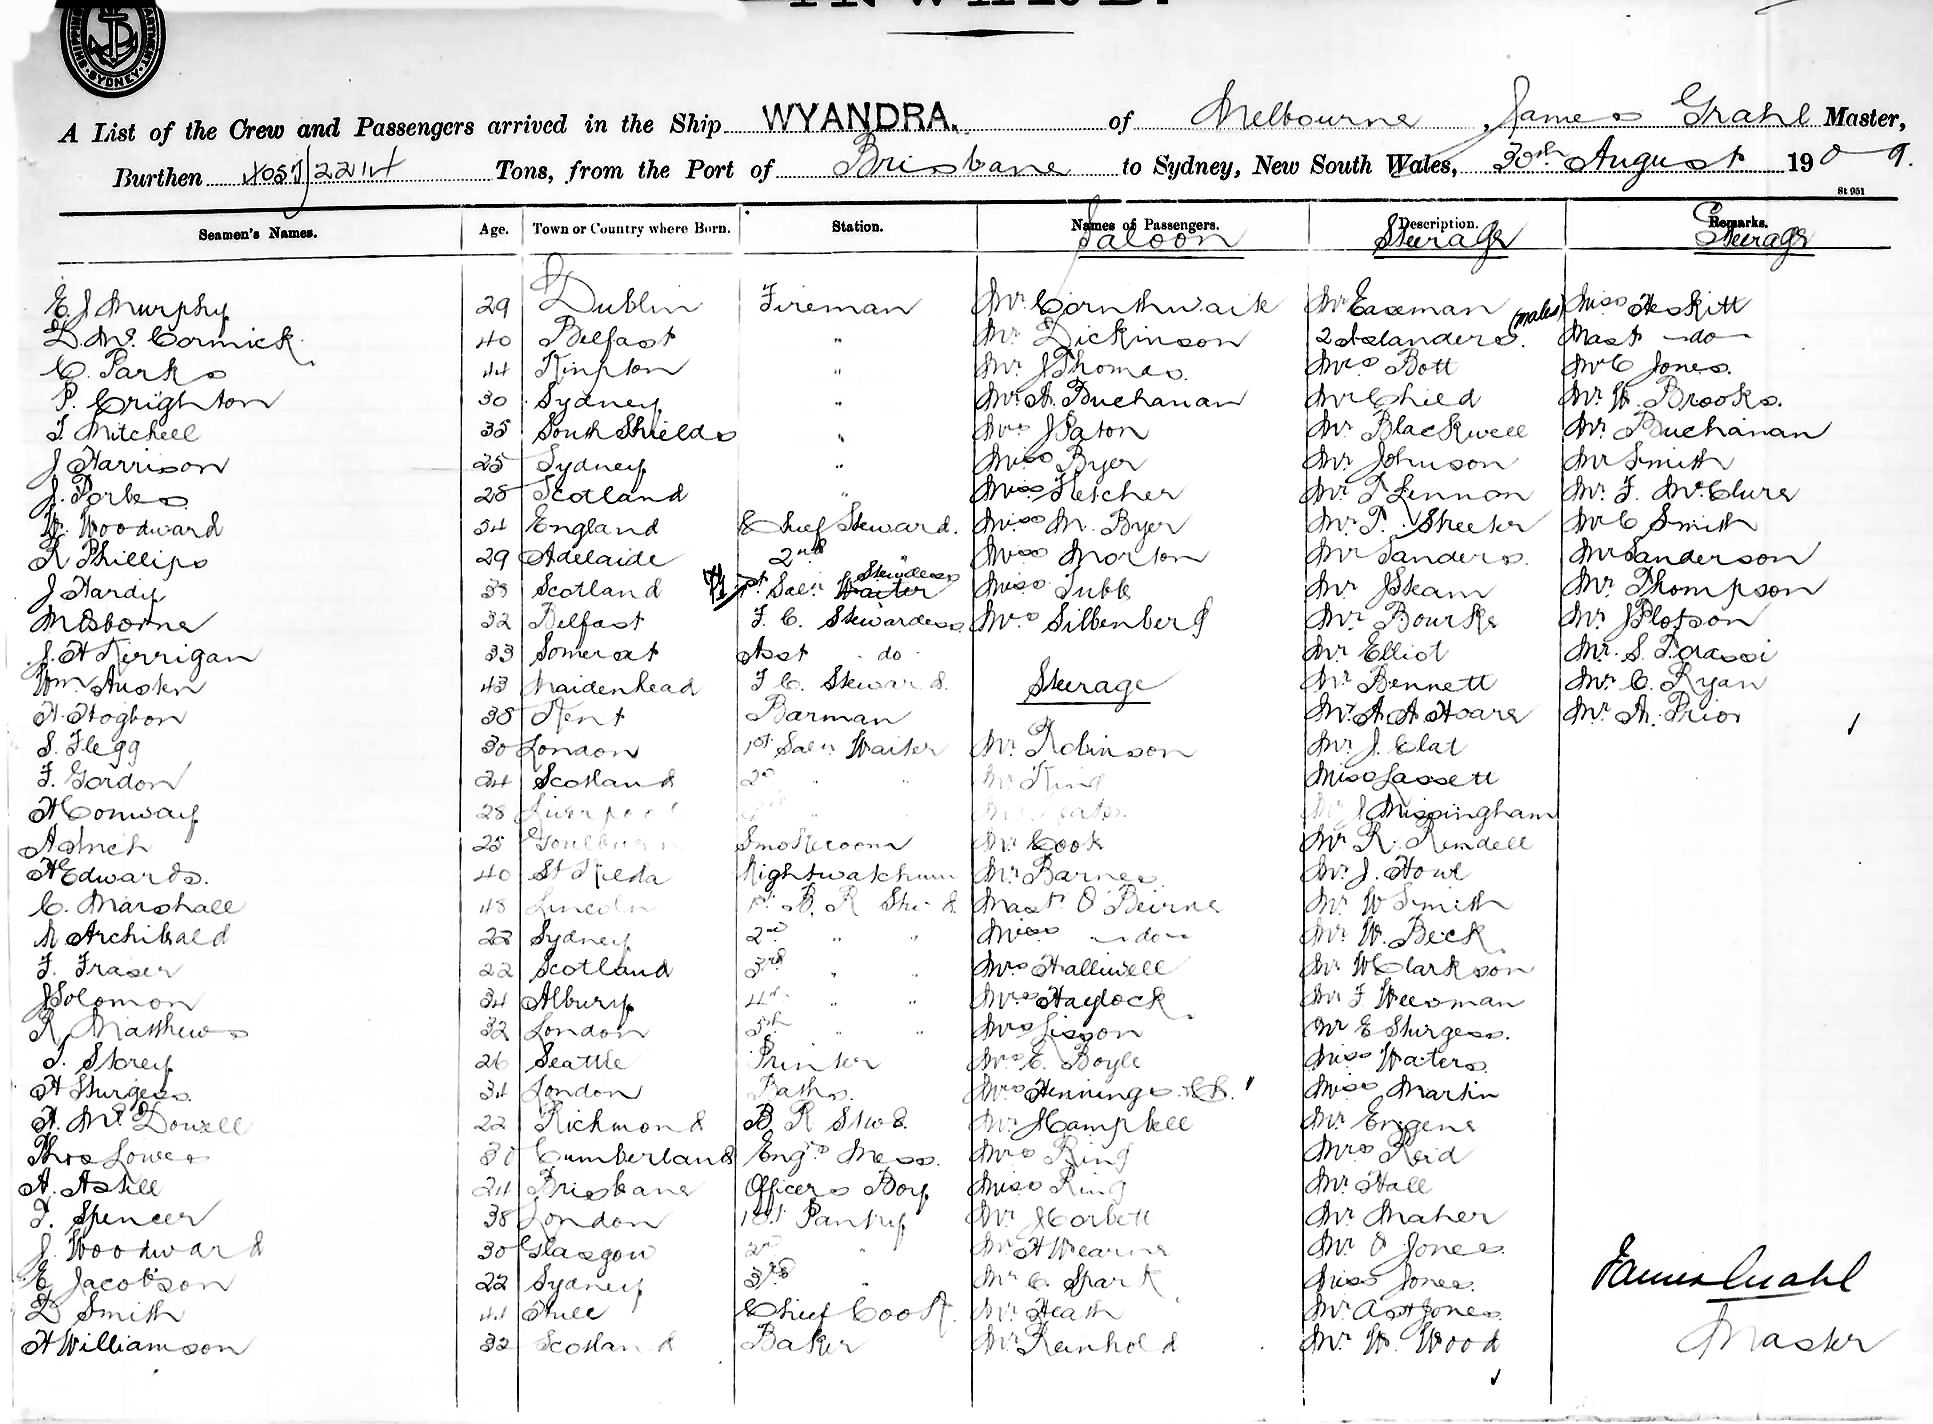 INWARD.
SHIPPING SYDNEY
A List of the Crew and Passengers arrived in the Ship WYANDRA. of Melbourne, James Grahl Master,
Burthen 4057/2214 Tons, from the Port of Brisbane to Sydney, New South Wales, 30th August 1909.
St 951
Seamen's Names. Age. Town or Country where Born. Station. Names of Passengers. Description. Remarks.
Saloon Steerage Steerage
E J Murphy 29 Dublin Fireman Mr Cornthwaite Mr Eaxman Miss Heskitt
D. Mc Cormick 40 Belfast " Mr Dickinson 2 Islanders. (males) Mast -do-
C. Parks 44 Kinpton " Mr J Thomas. Mrs Bott Mr C Jones.
P. Crighton 30 Sydney " Mr A. Buchanan Mr Child Mr W. Brooks.
T. Mitchell 35 South Shields " Mrs J Paton Mr Blackwell Mr Buchanan
J Harrison 25 Sydney " Miss Byer Mr Johnson Mr Smith
J. Forbes 28 Scotland " Miss Fletcher Mr T Lennon Mr. F. McClure
W. Woodward 34 England Chief Steward. Miss M. Byer Mr P. Streeter Mr C Smith
R Phillips 29 Adelaide 2nd " Miss Morton Mr Sanders. Mr Sanderson
J Hardy 38 Scotland 1st Saln Waiter Stewdess Miss Tubb Mr J Steam Mr Thompson
M Osborne 32 Belfast F. C. Stewardess Mrs Silbenberg Mr Bourke Mr J Plotson
J. H Kerrigan 33 Somerset Asst do Mr Elliot Mr. S. Torassi
Wm. Austen 43 Maidenhead F C. Steward. Steerage Mr Bennett Mr C. Ryan
H. Hogbon 38 Kent Barman Mr A A Hoare Mr A. Prior
S. Flegg 30 London 1st Saln Waiter Mr. Robinson Mr J. Elat
F. Gordon 24 Scotland 2nd " " Mr King Miss Lassett
H Conway 28 Liverpool Mr J Missingham
25 Goulburn Smokeroom Mr Cook Mr R. Rendell
H Edwards. 40 St Kilda Nightwatchman Mr Barnes Mr J. Howe
C. Marshall 48 Lincoln 1st B. R Stwd Mast. O'Beirne Mr W Smith
A Archibald 22 Sydney 2nd " " Miss -do- Mr W. Beck
F. Fraser 22 Scotland 3rd " " Mrs Halliwell Mr W Clarkson
J Solomon 34 Albury 4th " " Mrs Haylock Mr F Weesman
R. Matthews 32 London 5th " " Mrs Lisson Mr E Sturgess.
T. Storey 26 Seattle Printer Mrs E. Boyle Miss Waters.
H Sturgess. 34 London Baths. Mrs Hennings Miss Martin
A. McDowell 22 Richmond B R Stwd. Mr J Campbell Mr Eugene
Thos Lowes 30 Cumberland Engrs Mess. Mrs King Mrs Reid
A. Astill 24 Brisbane Officers Boy Miss King Mr Hall
T. Spencer 38 London 1st Pantry Mr J Corbett Mr Maher
J. Woodward 30 Glasgow 2nd " Mr H Wearne Mr O Jones.
E Jacobson 22 Sydney 3rd " Mr C. Spark Miss Jones.
D Smith 41 Hull Chief Cook. Mr Heath Mr A St Jones
H Williamson 32 Scotland Baker Mr Reinhold Mr W. Wood
James Grahl
Master